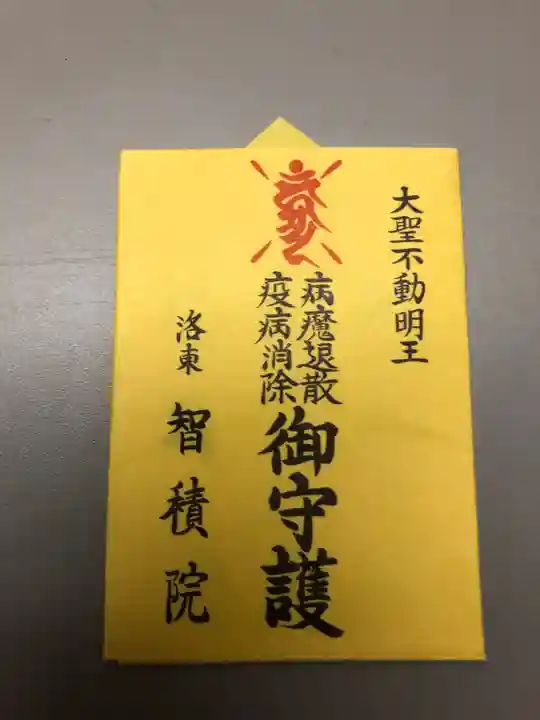 大聖不動明王
病魔退散
疫病消除
御守護
洛東 智積院